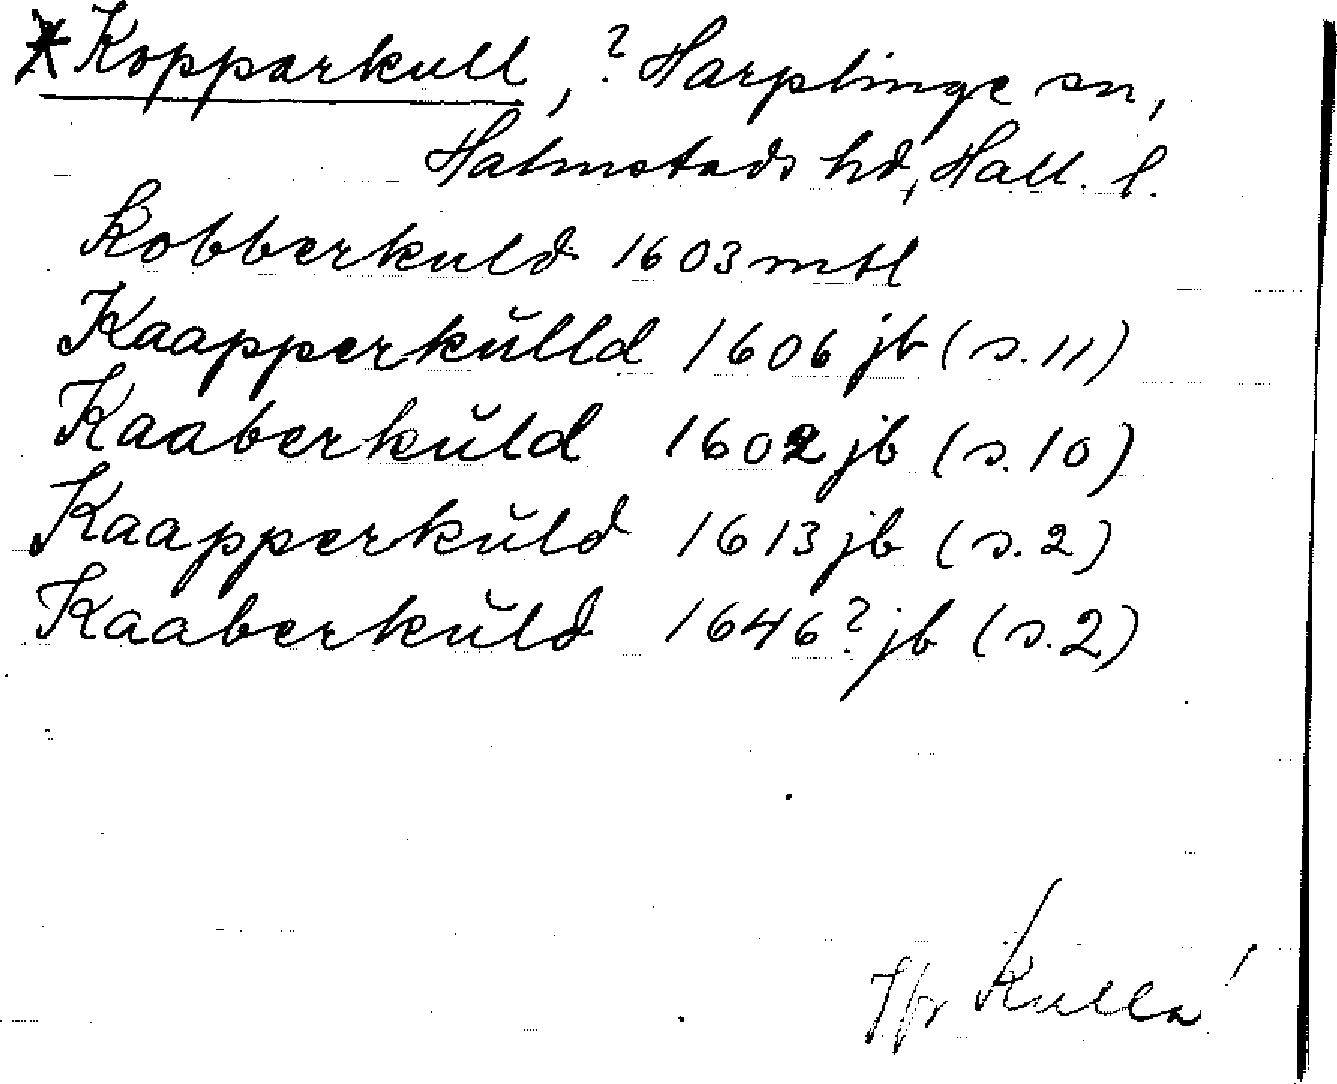 *Kopparkull, ? Harplinge sn,
Halmstads hd, Hall. l.
Kobberkuld 1603 mtl
Kaapperkŭlld 1606 jb (s. 11)
Kaaberkŭld 1602 jb (s. 10)
Kaapperkŭld 1613 jb (s. 2)
Kaaberkŭld 1646? jb (s. 2)
Jfr Kulla!